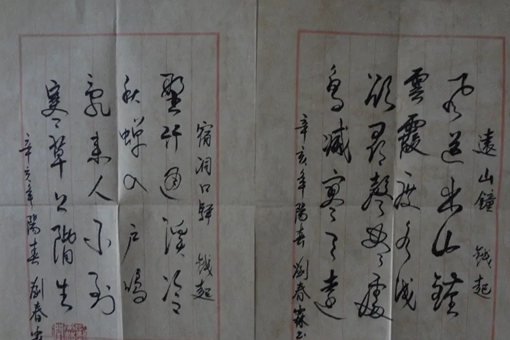 遠山鐘 錢起
風送出山鐘
雲霞度水淺
欲尋聲盡處
鳥滅寥天遠
辛亥年陽春劉春霖書
宿洞口驛 錢起
野竹通溪冷
秋蟬入戶鳴
亂來人不到
寒草上階生
辛亥年陽春劉春霖